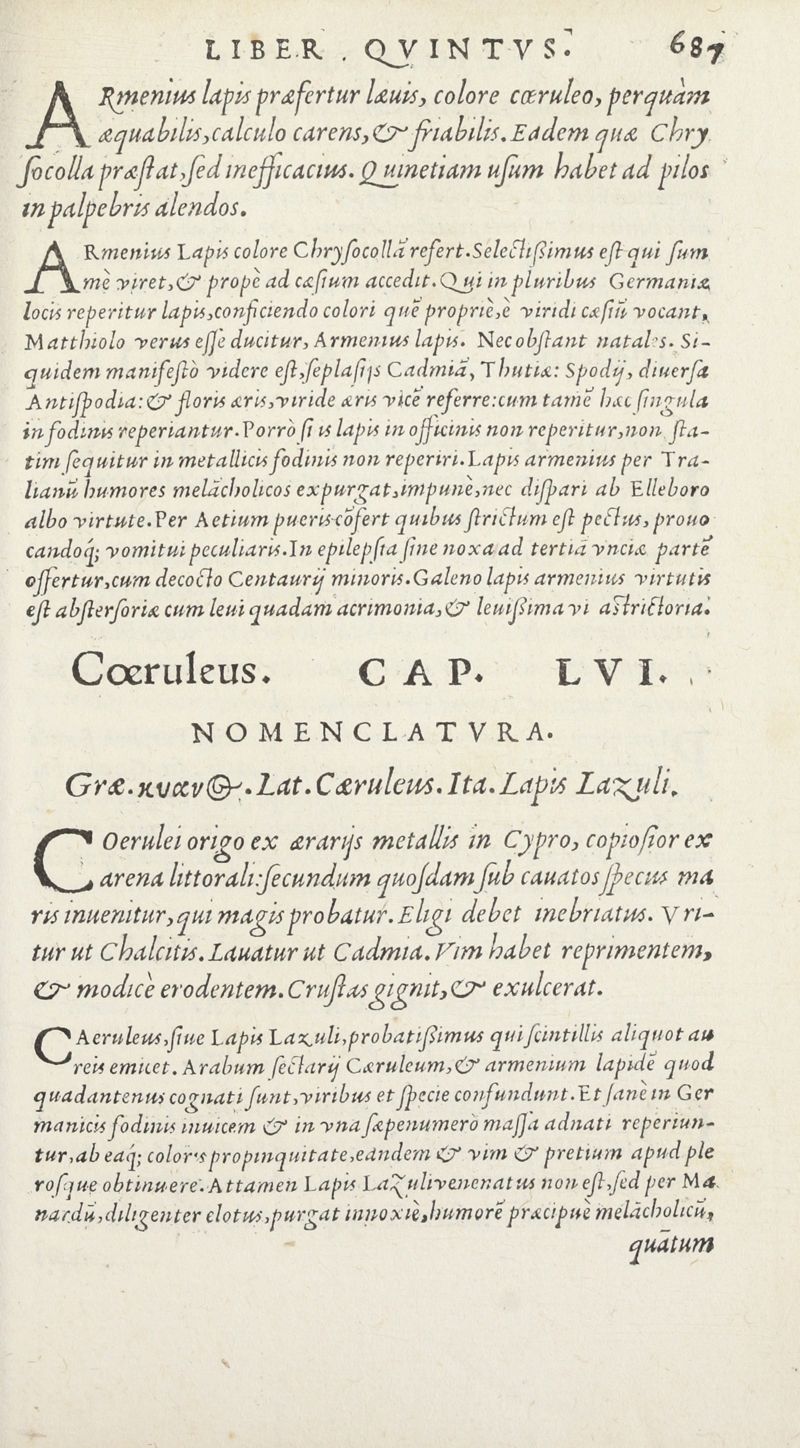 LIBER . QVINTVS. 687
ARmenius lapis præfertur læuis, colore cœruleo, perquàm
æquabilis, calculo carens, & friabilis. Eadem quæ Chry
socolla præstat, sed inefficacius. Quinetiam usum habet ad pilos
in palpebris alendos.
ARmenius Lapis colore Chrysocollā refert. Selectißimus est qui sum
mè viret, & propè ad cæsium accedit. Qui in pluribus Germaniæ
locis reperitur lapis, conficiendo colori quē propriè, è viridi cæsiū vocant,
Matthiolo verus esse ducitur, Armenius lapis. Nec obstant natales. Si-
quidem manifestò videre est, seplasijs Cadmiā, Thutiæ: Spodij, diuersa
Antispodia: & floris æris, viride æris vicē referre: cum tamē hæc singula
in fodinis reperiantur. Porrò si is lapis in officinis non reperitur, non sta-
tim sequitur in metallicis fodinis non reperiri. Lapis armenius per Tra-
lianū humores melācholicos expurgat, impunè, nec dispari ab Elleboro
albo virtute. Per Aetium pueris cōfert quibus strictum est pectus, prouo
candoq; vomitui peculiaris. In epilepsia sine noxa ad tertiā vnciæ partē
offertur, cum decocto Centaurij minoris. Galeno lapis armenius virtutis
est abstersoriæ cum leui quadam acrimonia, & leuißima vi astrictoria.
Cœruleus. CAP. LVI.
NOMENCLATVRA.
Græ. κυαν@. Lat. Cæruleus. Ita. Lapis Lazuli.
COerulei origo ex ærarijs metallis in Cypro, copiosior ex
arena littorali: secundum quosdam sub cauatos specus ma
ris inuenitur, qui magis probatur. Eligi debet inebriatus. Vri-
tur ut Chalcitis. Lauatur ut Cadmia. Vim habet reprimentem,
& modicè erodentem. Crustas gignit, & exulcerat.
CAeruleus, siue Lapis Lazuli, probatißimus qui scintillis aliquot au
reis emicet. Arabum sectarij Cæruleum, & armenium lapidē quod
quadantenus cognati sunt, viribus et specie confundunt. Et sanè in Ger
manicis fodinis inuicem & in vna sæpenumerò massa adnati reperiun-
tur, ab eaq; coloris propinquitate, eandem & vim & pretium apud ple
rosque obtinuere. Attamen Lapis Lazuli venenatus non est, sed per Ma
nardū, diligenter elotus, purgat innoxiè, humorē præcipuè melācholicū,
quātum